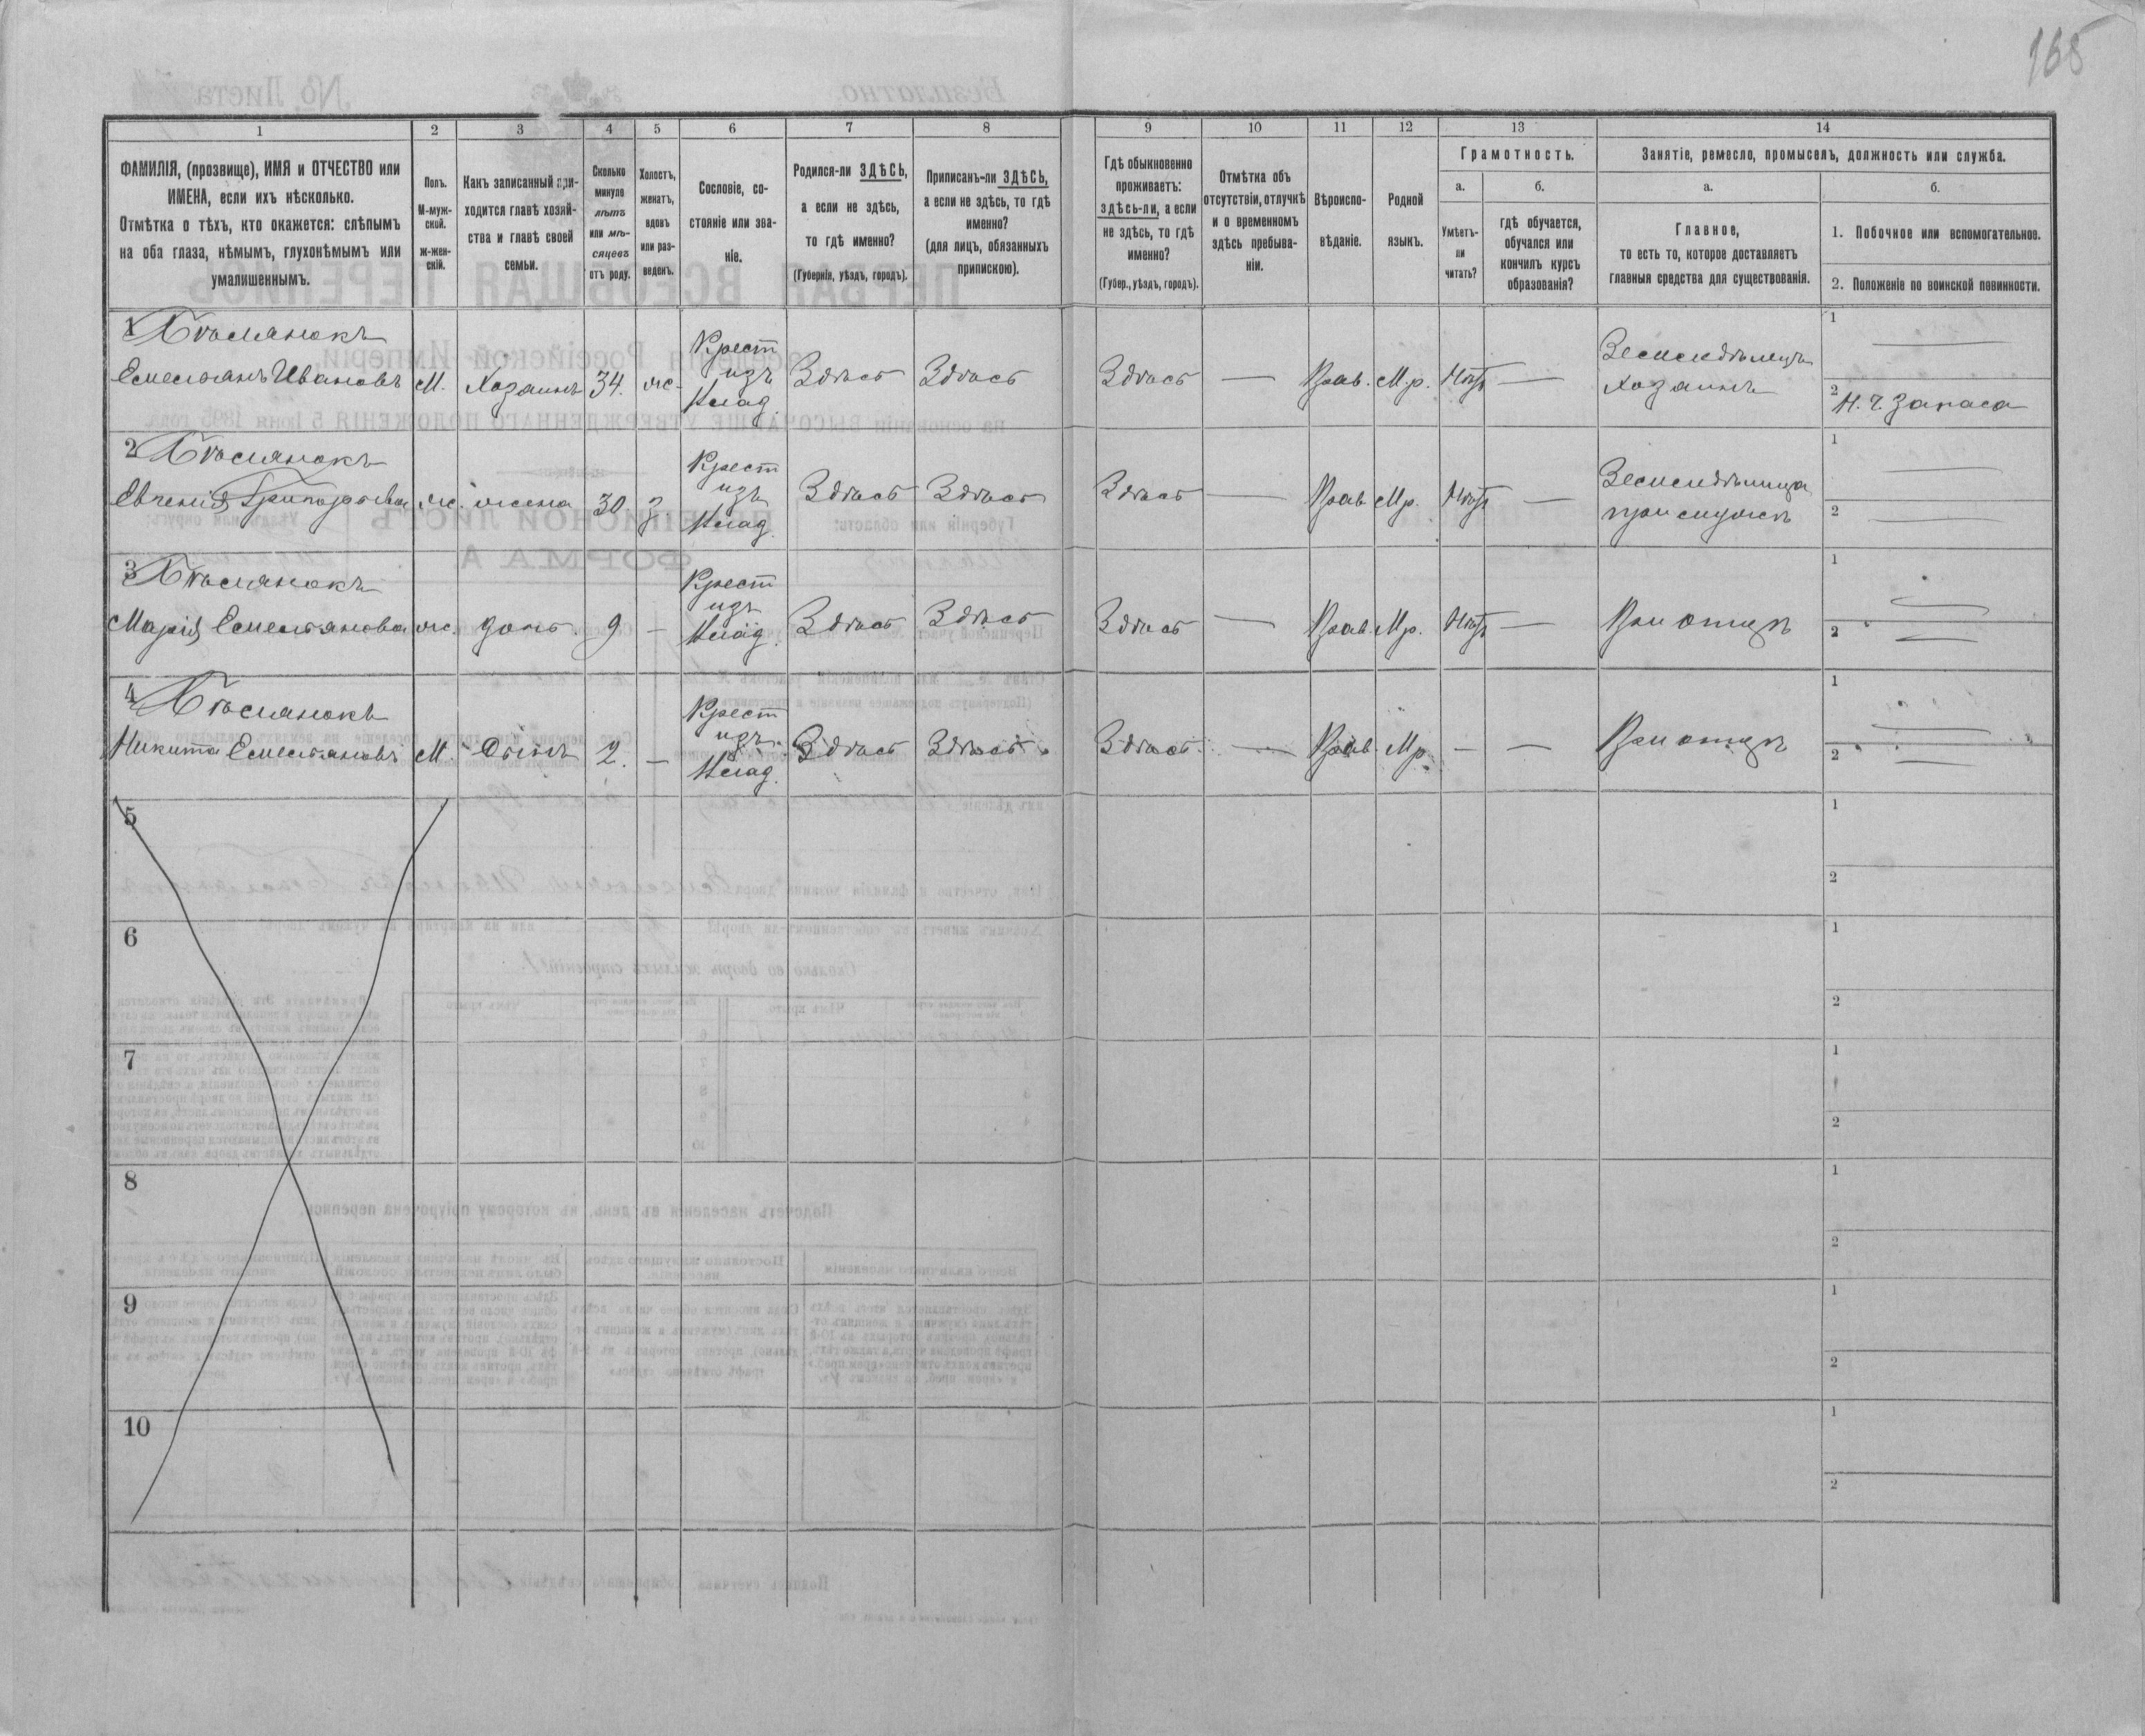 165
1 2 3 4 5 6 7 8 9 10 11 12 13 14
ФАМИЛІЯ, (прозвище), ИМЯ и ОТЧЕСТВО или
ИМЕНА, если ихъ нѣсколько.
Отмѣтка о тѣхъ, кто окажется: слѣпымъ
на оба глаза, нѣмымъ, глухонѣмымъ или
умалишеннымъ.
Полъ.
М-муж-
ской.
ж-жен-
скій.
Какъ записанный при-
ходится главѣ хозяй-
ства и главѣ своей
семьи.
Сколько
минуло
лѣтъ
или мѣ-
сяцевъ
отъ роду.
Холостъ,
женатъ,
вдовъ
или раз-
веденъ.
Сословіе, со-
стояніе или зва-
ніе.
Родился-ли ЗДѢСЬ,
а если не здѣсь,
то гдѣ именно?
(Губернія, уѣздъ, городъ).
Приписанъ-ли ЗДѢСЬ,
а если не здѣсь, то гдѣ
именно?
(для лицъ, обязанныхъ
припискою).
Гдѣ обыкновенно
проживаетъ:
здѣсь-ли, а если
не здѣсь, то гдѣ
именно?
(Губер., уѣздъ, городъ).
Отмѣтка объ
отсутствіи, отлучкѣ
и о временномъ
здѣсь пребыва-
ніи.
Вѣроиспо-
вѣданіе.
Родной
языкъ.
Грамотность.
а.
Умѣетъ-
ли
читать?
б.
гдѣ обучается,
обучался или
кончилъ курсъ
образованія?
Занятіе, ремесло, промыселъ, должность или служба.
а.
Главное,
то есть то, которое доставляетъ
главныя средства для существованія.
б.
1. Побочное или вспомогательное.
2. Положеніе по воинской повинности.
1
Емельянъ Ивановъ М. Хозяинъ 34. ж. Крест изъ Влад. Здѣсь Здѣсь Здѣсь — Прав. Мр. Нѣтъ —
Земледѣлецъ
Хозяинъ
1 —
2 Н. Ч. Запаса
2
Евгенія Григорьева ж. жена 30. З. Крест изъ Влад. Здѣсь Здѣсь Здѣсь — Прав. Мр. Нѣтъ —
Земледѣлица
при мужѣ
1 —
2 —
3
Марія Емельянова ж. дочь 9 — Крест изъ Влад. Здѣсь Здѣсь Здѣсь — Прав. Мр. Нѣтъ —
При отцѣ
1 —
2 —
4
Никита Емельяновъ М. Сынъ 2. — Крест изъ Влад. Здѣсь Здѣсь Здѣсь — Прав. Мр. — —
При отцѣ
1 —
2 —
5
1
2
6
1
2
7
1
2
8
1
2
9
1
2
10
1
2